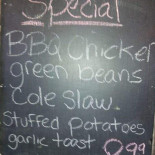 Special
BBQ Chicken
green beans
Cole Slaw.
Stuffed Potatoes
garlic toast 8.99